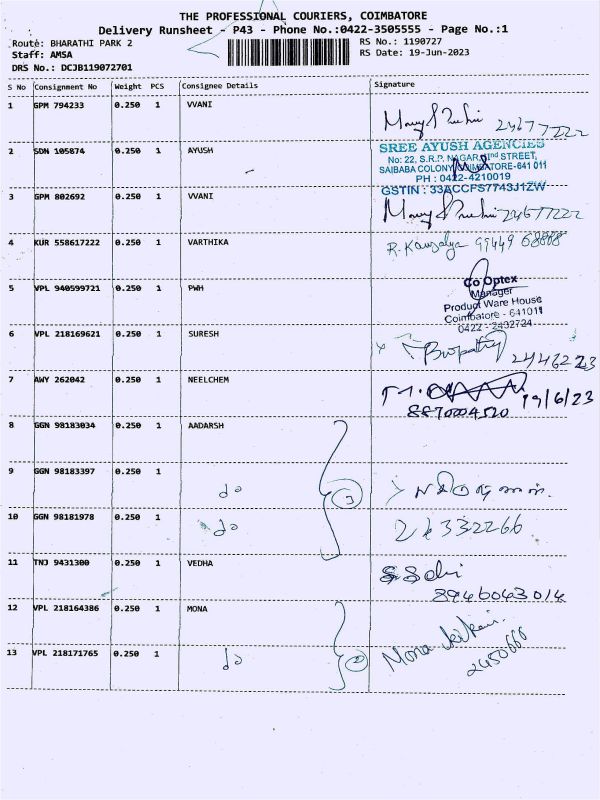 THE PROFESSIONAL COURIERS, COIMBATORE
Delivery Runsheet - P43 - Phone No.:0422-3505555 - Page No.:1
Route: BHARATHI PARK 2 RS No.: 1190727
Staff: AMSA RS Date: 19-Jun-2023
DRS No.: DCJB119072701
S No Consignment No Weight PCS Consignee Details Signature
1 GPM 794233 0.250 1 VVANI
24677222
2 SDN 105874 0.250 1 AYUSH
SREE AYUSH AGENCIES
No: 22, S.R.P. NAGAR, IInd STREET,
SAIBABA COLONY, COIMBATORE-641 011
PH : 0422-4210019
GSTIN : 33ACCFS7743J1ZW
3 GPM 802692 0.250 1 VVANI
24677222
4 KUR 558617222 0.250 1 VARTHIKA
R. Kausalya 99449
5 VPL 940599721 0.250 1 PWH
Co Optex
Manager
Product Ware House
Coimbatore - 641011
0422 - 2432724
6 VPL 218169621 0.250 1 SURESH
7 AWY 262042 0.250 1 NEELCHEM
19/6/23
8870004520
8 GGN 98183034 0.250 1 AADARSH
9 GGN 98183397 0.250 1
do
3
10 GGN 98181978 0.250 1
do
2k332266
11 TNJ 9431300 0.250 1 VEDHA
8946043014
12 VPL 218164386 0.250 1 MONA
13 VPL 218171765 0.250 1
do
2
Mona
2450666